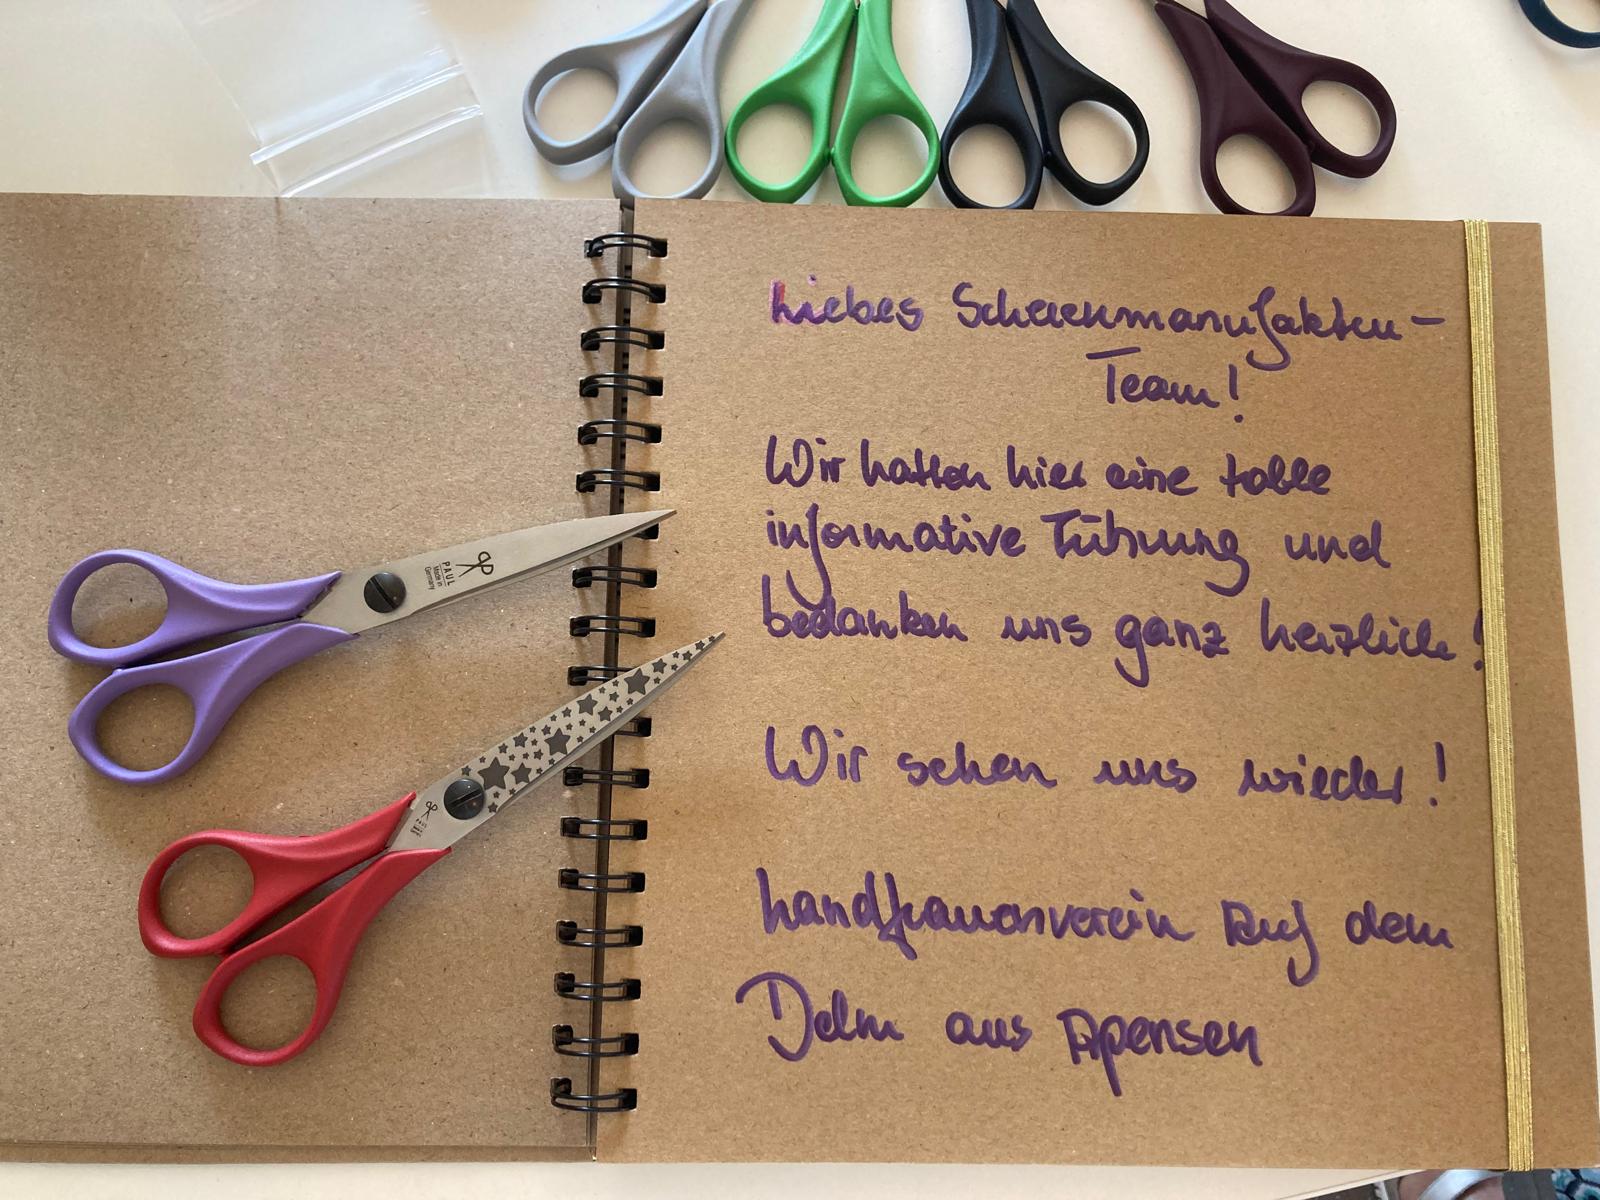 Liebes Scherenmanufaktur-
Team!
Wir hatten hier eine tolle
informative Führung und
bedanken uns ganz herzlich!
Wir sehen uns wieder!
Landfrauenverein Auf dem
Delm aus Apensen
PAUL
Made in
Germany
PAUL